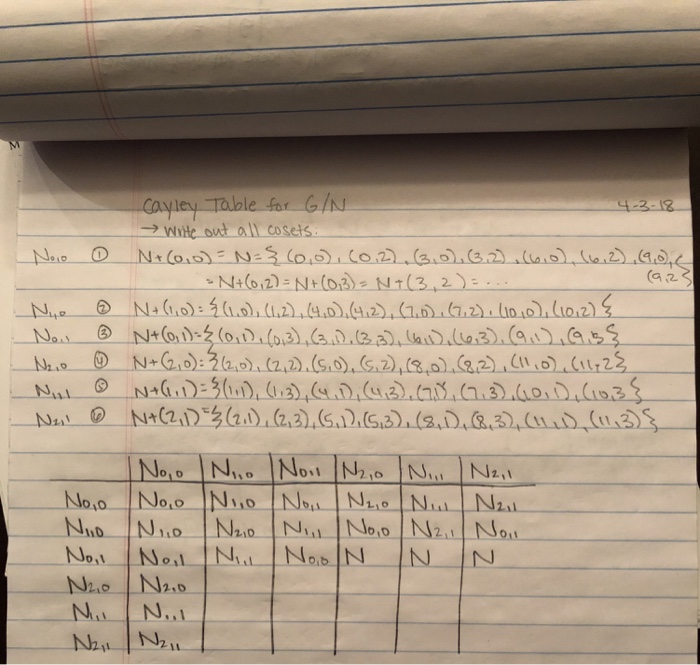 M
Cayley Table for G/N 4-3-18
→ Write out all cosets.
N0,0 ① N+(0,0) = N = { (0,0), (0,2), (3,0), (3,2), (6,0), (6,2), (9,0),
(9,2)}
= N+(0,2) = N+(0,3) = N+(3,2) = ...
N1,0 ② N+(1,0) = {(1,0), (1,2), (4,0), (4,2), (7,0), (7,2), (10,0), (10,2)}
N0,1 ③ N+(0,1) = {(0,1), (0,3), (3,1), (3,3), (6,1), (6,3), (9,1), (9,3}
N2,0 ④ N+(2,0) = {(2,0), (2,2), (5,0), (5,2), (8,0), (8,2), (11,0), (11,2}
N1,1 ⑤ N+(1,1) = {(1,1), (1,3), (4,1), (4,3), (7,1), (7,3), (10,1), (10,3}
N2,1 ⑥ N+(2,1) = {(2,1), (2,3), (5,1), (5,3), (8,1), (8,3), (11,1), (11,3)}
N0,0 N1,0 N0,1 N2,0 N1,1 N2,1
N0,0 N0,0 N1,0 N0,1 N2,0 N1,1 N2,1
N1,0 N1,0 N2,0 N1,1 N0,0 N2,1 N0,1
N0,1 N0,1 N1,1 N0,0 N N N
N2,0 N2,0
N1,1 N1,1
N2,1 N2,1